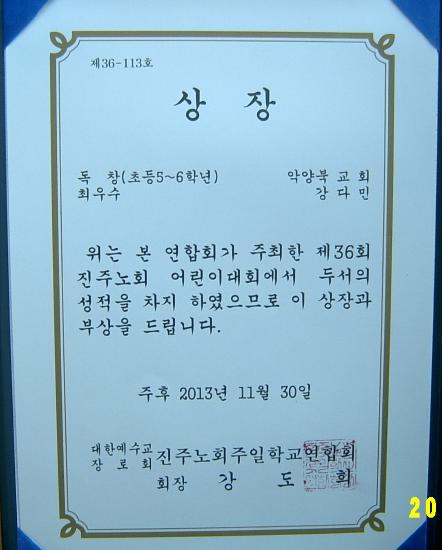 제36-113호
상 장
독 창(초등5~6학년) 악양북 교 회
최우수 강 다 민
위는 본 연합회가 주최한 제36회
진주노회 어린이대회에서 두서의
성적을 차지 하였으므로 이 상장과
부상을 드립니다.
주후 2013년 11월 30일
대한예수교
장 로 회 진주노회주일학교연합회
회장 강 도 회
20